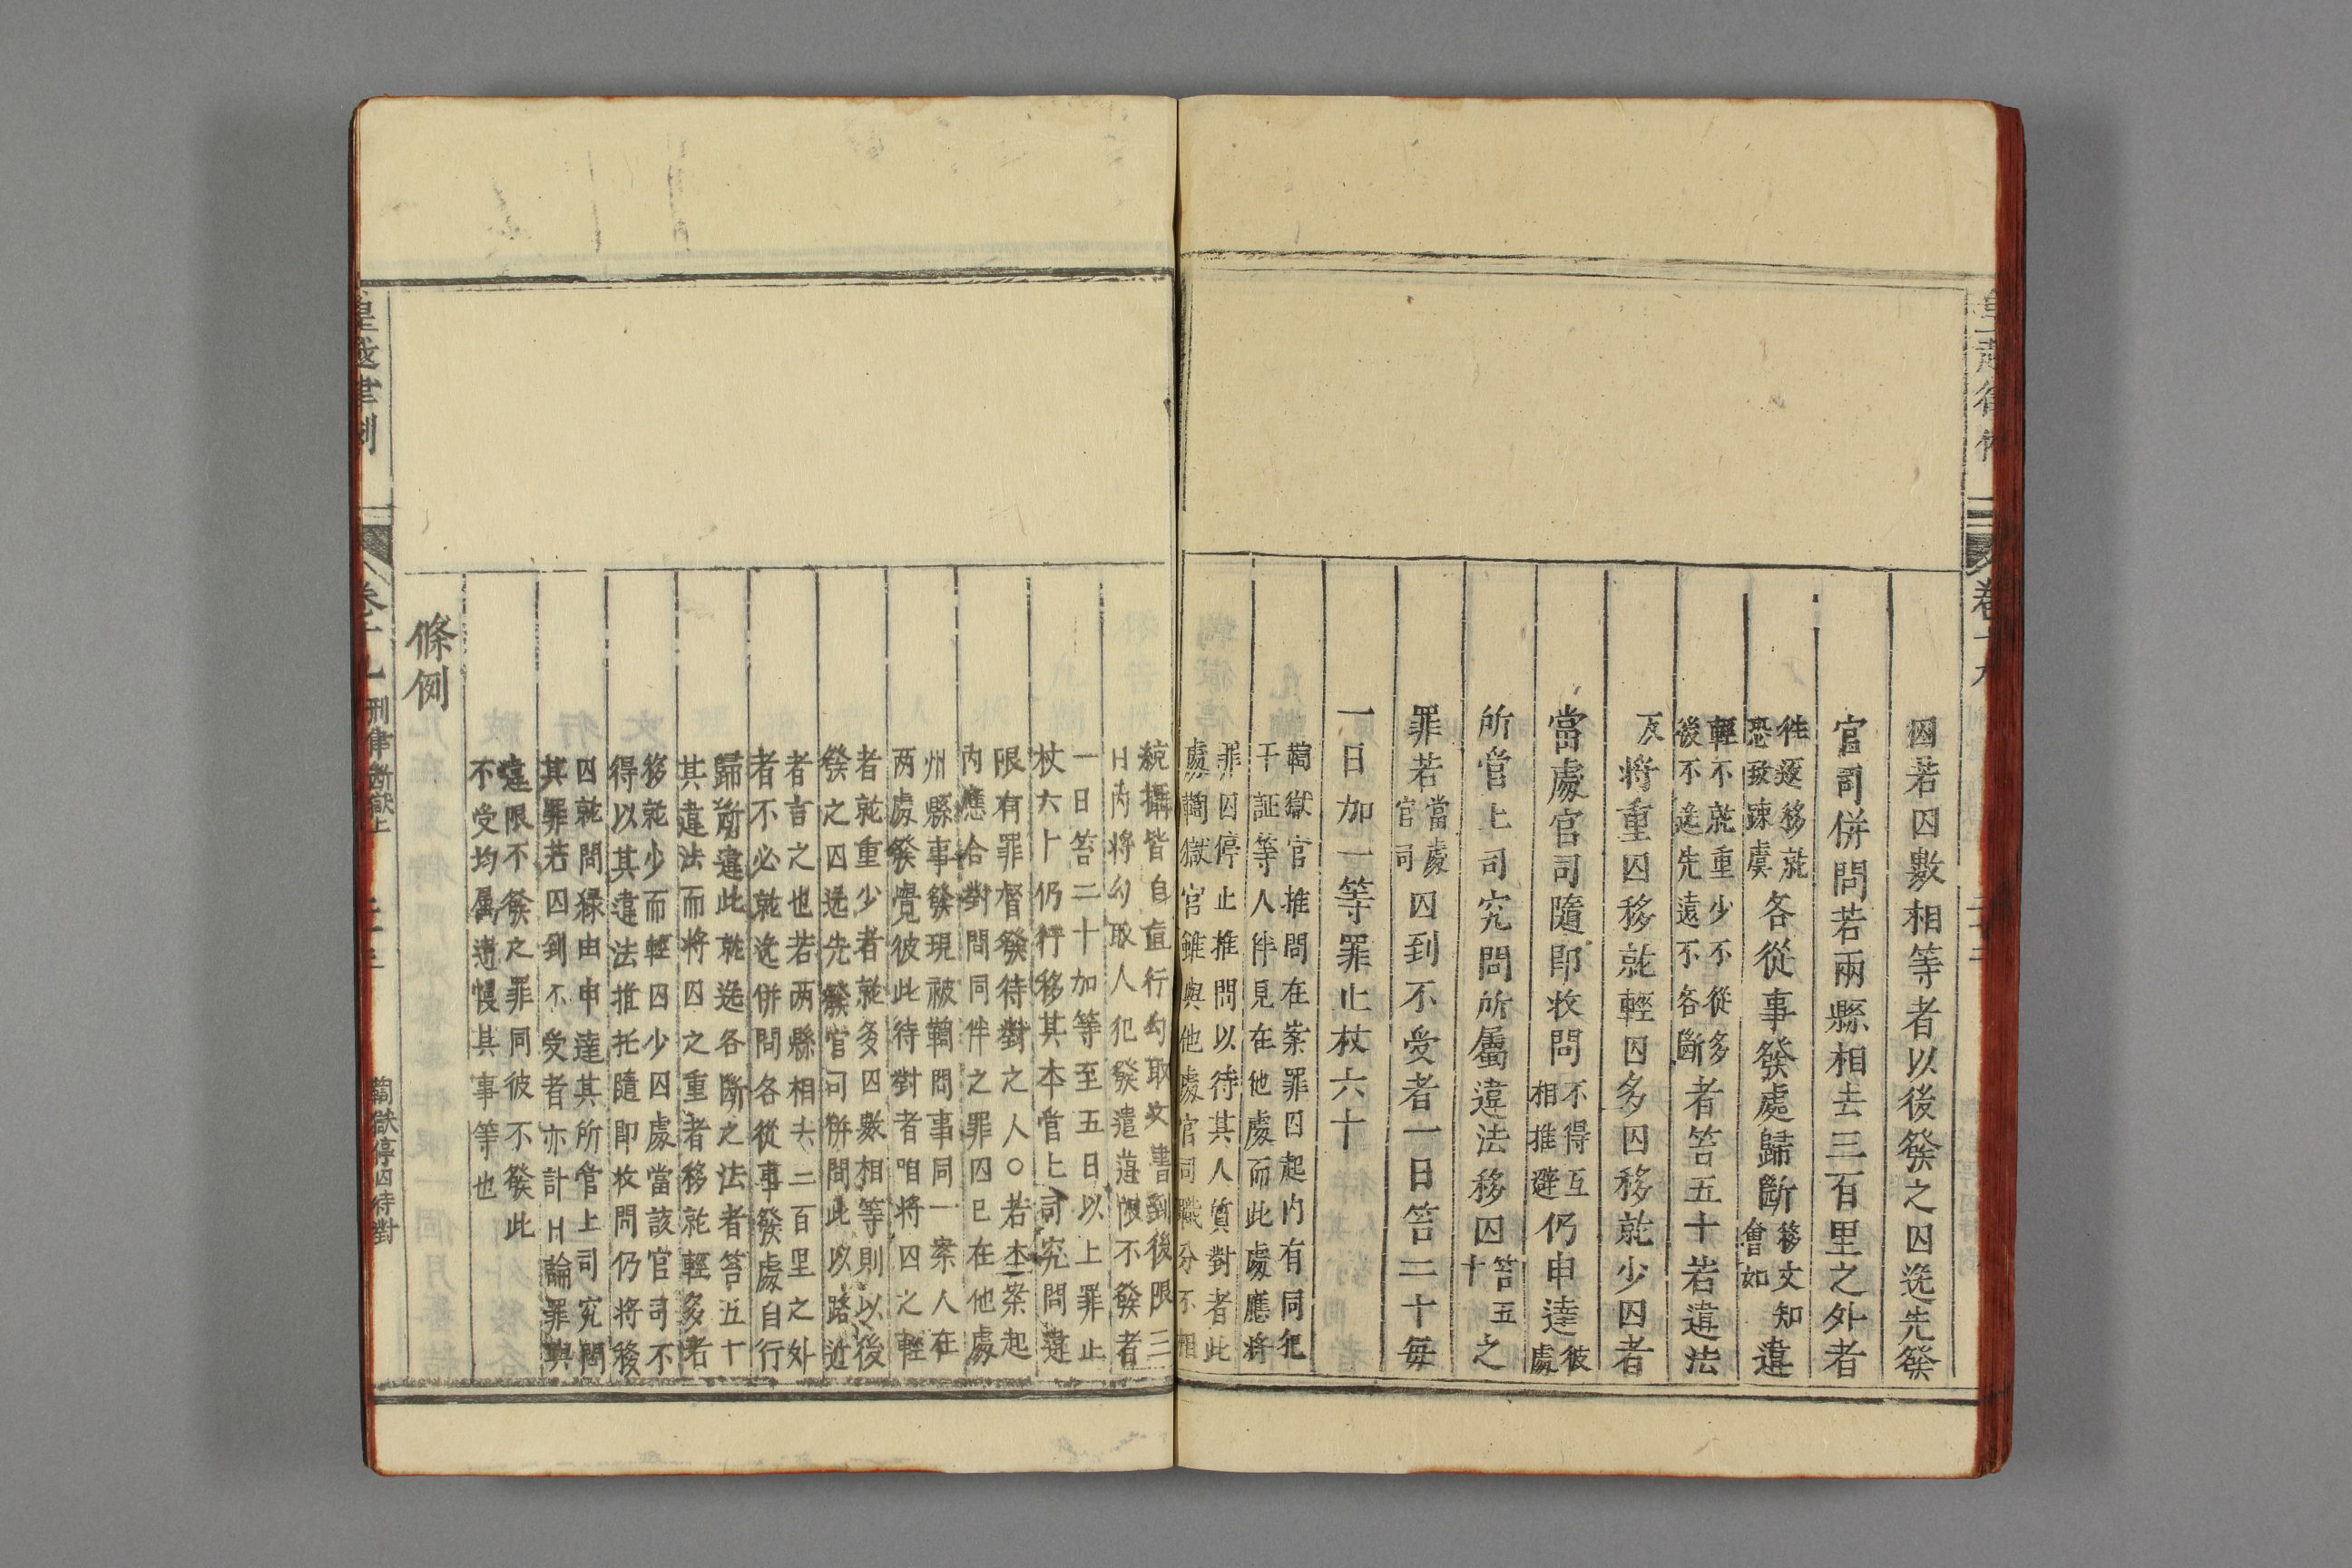 囚若囚數相等者以後發之囚送先發
官司併問若兩縣相去三百里之外者
往返移就
恐致踈虞
各從事發處歸斷
移文知
會如
違
輕不就重少不從多
後不送先遠不各斷
者笞五十若違法
反
將重囚移就輕囚多囚移就少囚者
當處官司隨即收問
不得互
相推避
仍申達
彼
處
所管上司究問所屬違法移囚
笞五
十
之
罪若
當處
官司
囚到不受者一日笞二十每
一日加一等罪止杖六十
鞫獄官推問在案罪囚起內有同犯
干証等人伴見在他處而此處應將
罪囚停止推問以待其人質對者此
處鞫獄官雖與他處官司職分不相
統攝皆自直行勾取文書到後限三
日內將勾取人犯發遣違限不發者
一日笞二十加等至五日以上罪止
杖六十仍行移其本管上司究問違
限有罪督發待對之人○若本案起
內應合對問同伴之罪囚已在他處
州縣事發現被鞫問事同一案人在
兩處發覺彼此待對者咱將囚之輕
者就重少者就多囚數相等則以後
發之囚送先發官司併問此以路近
者言之也若兩縣相去三百里之外
者不必就送併問各從事發處自行
歸斷違此就送各斷之法者笞五十
其違法而將囚之重者移就輕多者
移就少而輕囚少囚處當該官司不
得以其違法推托隨即收問仍將移
囚就問緣由申達其所管上司究問
其罪若囚到不受者亦計日論罪與
違限不發之罪同彼不發此
不受均屬遲慢其事等也
條例
皇越律例
卷十九
刑律斷獄上
鞫獄停囚待對